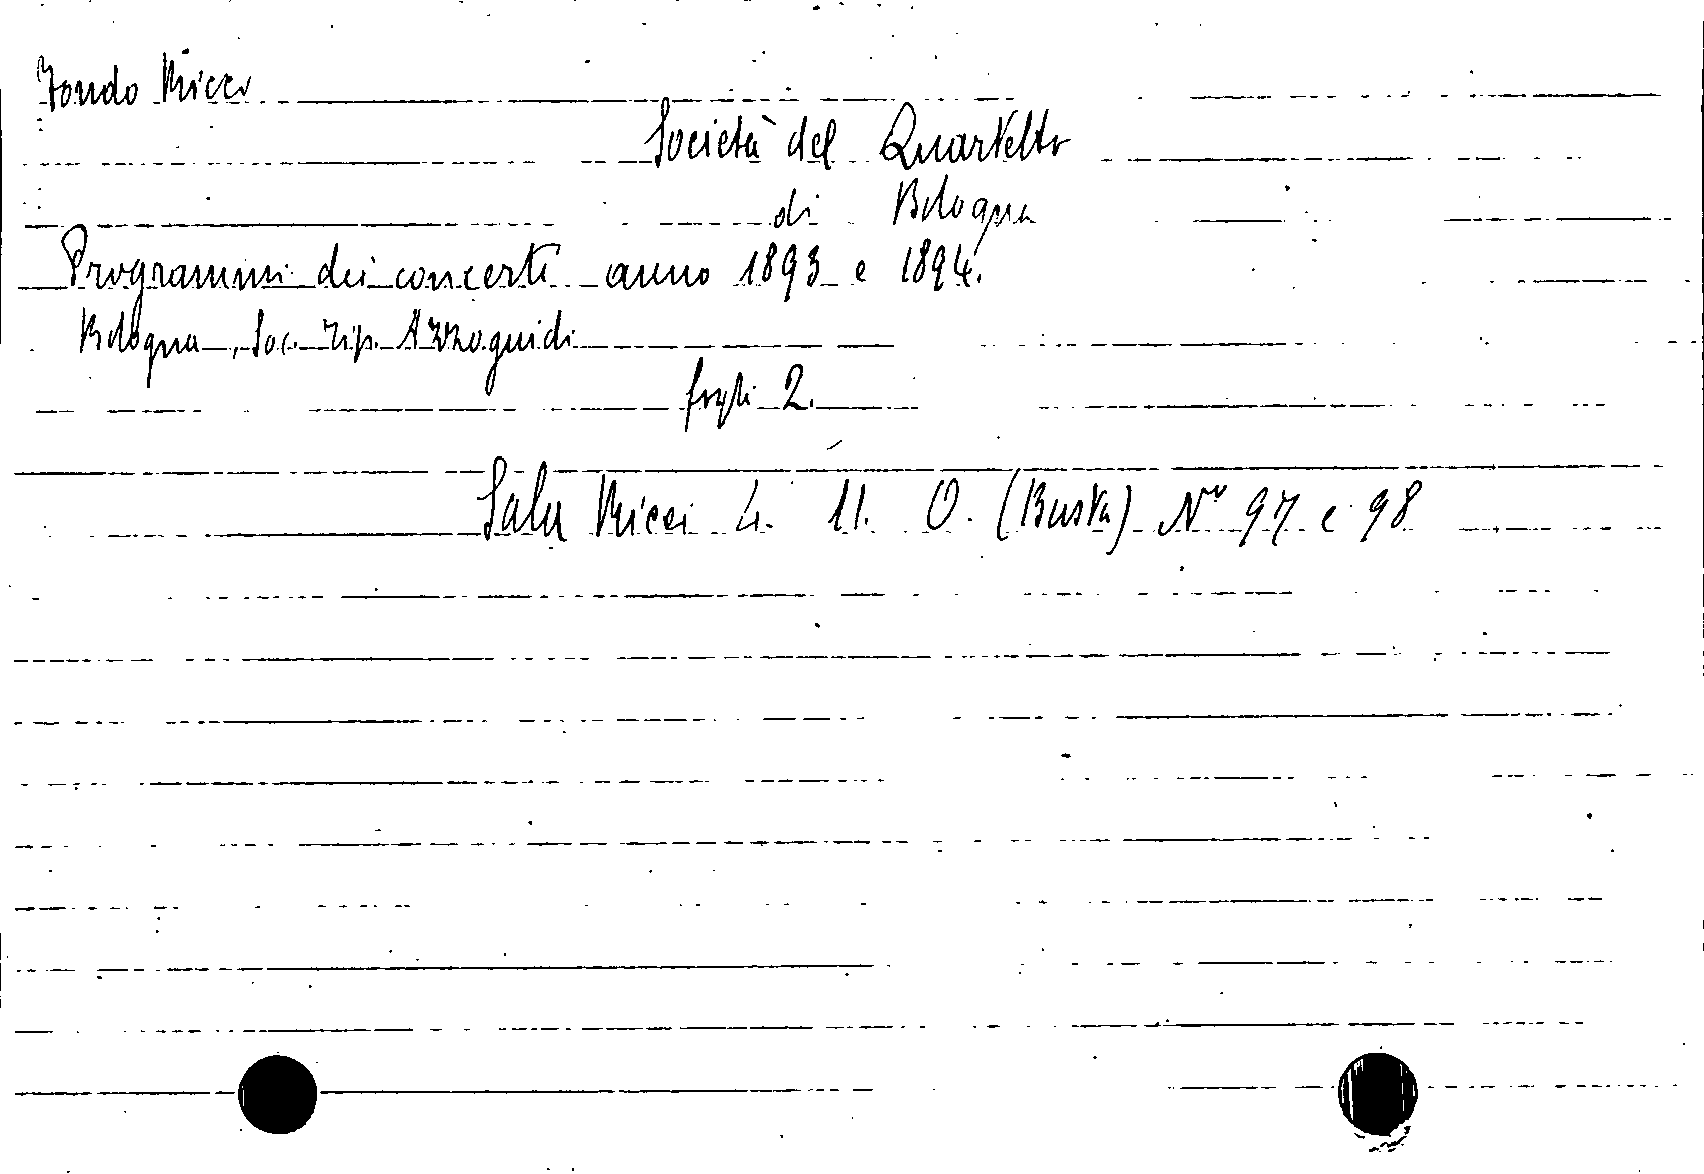 Fondo Ricci
Società del Quartetto
di Bologna
Programmi dei concerti anno 1893 e 1894.
Bologna, Soc. Tip. Azzoguidi
fogli 2.
Sala Ricci L. 11. O. (Busta) No 97 e 98